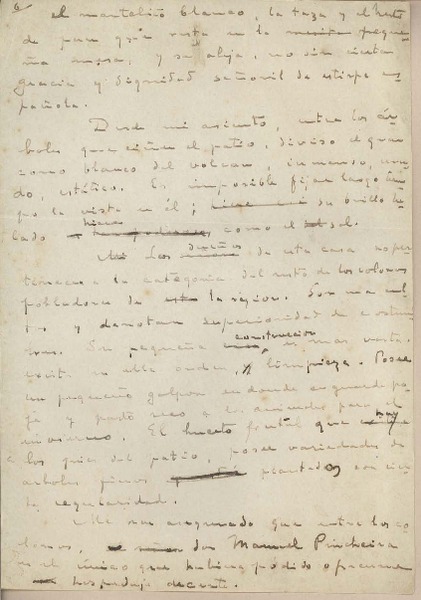 6
el mantelito blanco, la taza y el resto
de pan que resta en la mesita peque-
ña mesa, y se aleja, no sin cierta
gracia y dignidad señoril de estirpe es-
pañola.
Desde mi asiento, entre los ár-
boles que ciñen el patio, diviso el gran
cono blanco del volcan, inmenso,
do, estático. Es imposible fijar largo tiem-
po la vista en él; su brillo he-
lado hiere como el sol.
Los dueños de esta casa no per-
tenecen a la categoria del resto de los colonos
pobladores de la region. Son mas cul-
tos y denotan superioridad de costum-
bres. Su pequeña construccion es mas vasta.
existe en ella orden y limpieza. Posee
un pequeño galpon en donde se guarda pa-
ja y pasto seco para el
invierno. El huerto frutal que hay
a los pies del patio, posee variedades de
arboles finos plantados con cier-
ta regularidad.
Me han asegurado que entre los co-
lonos, don Manuel Pincheira
es el único que hubiera podido ofrecerme
hospedaje decente.